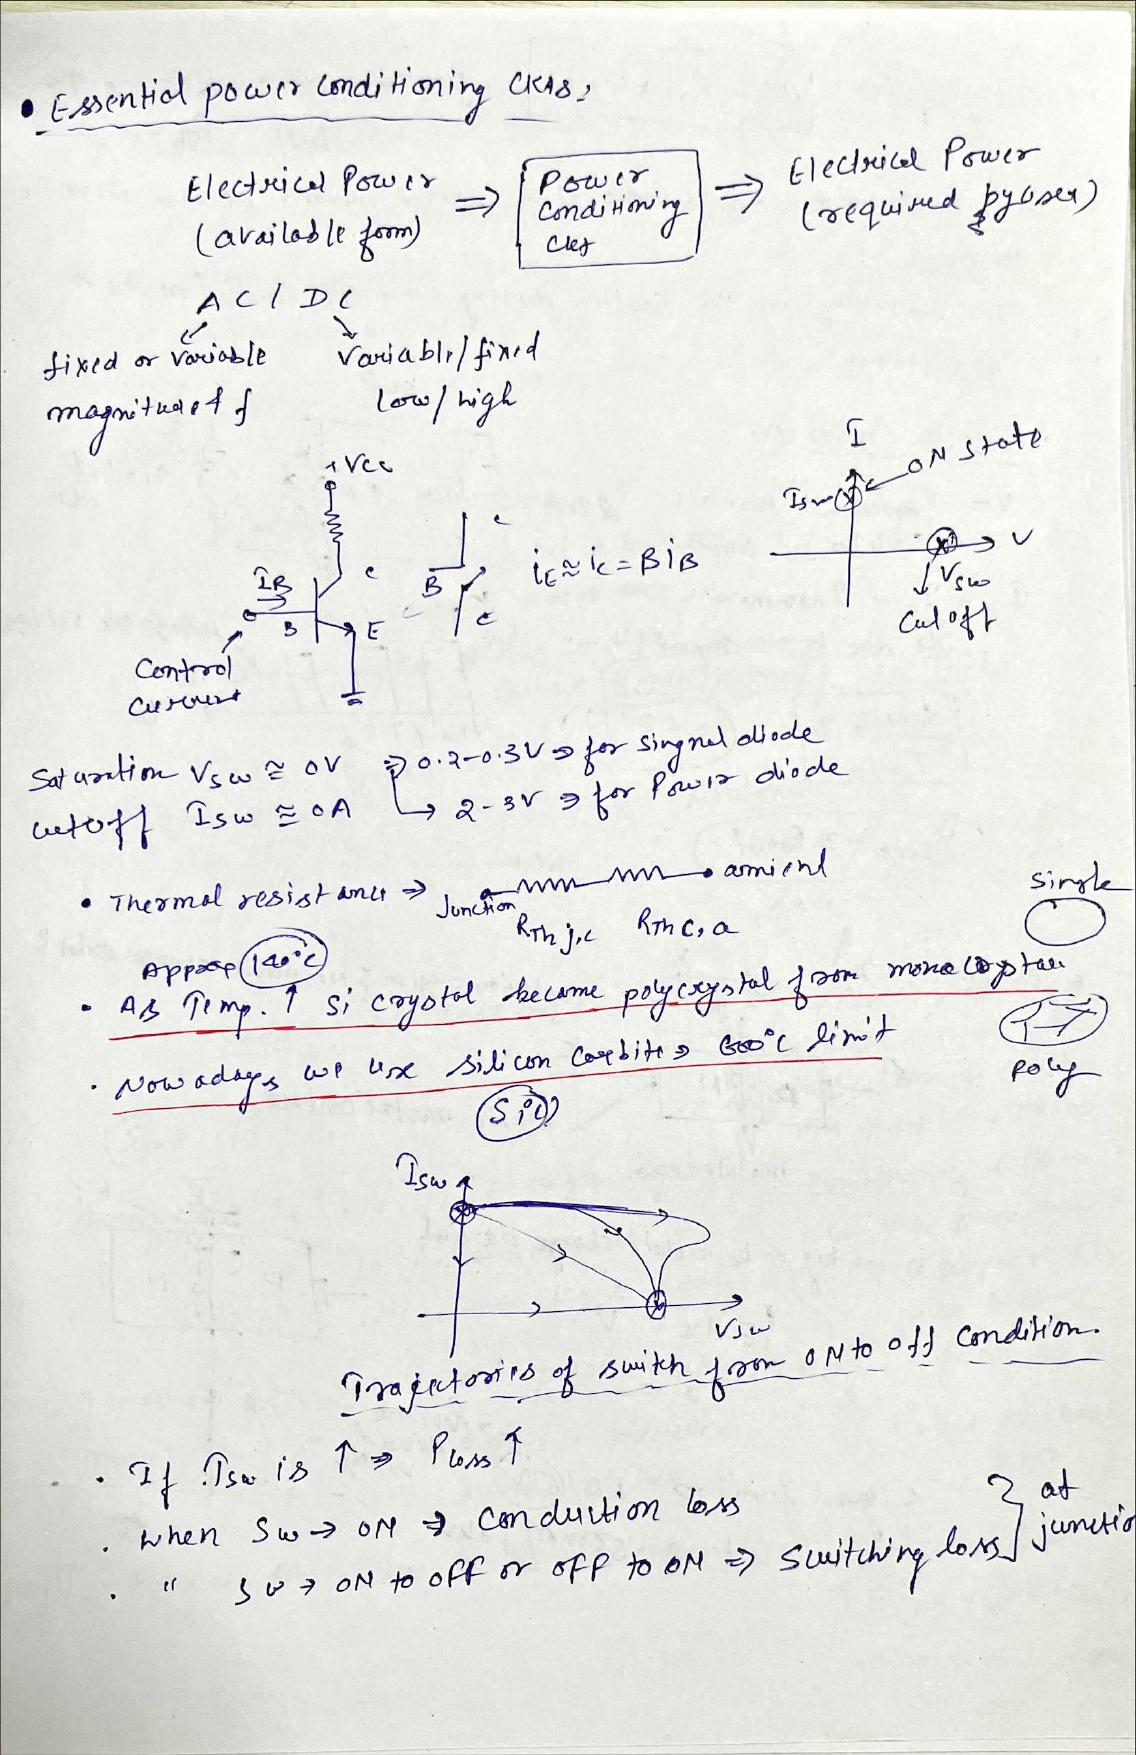 • Essential power conditioning Ckts:
Electrical Power ⇒ Power Conditioning Ckt ⇒ Electrical Power
(available form) (required by user)
AC / DC
fixed or variable magnitude & f
variable / fixed
low / high
+Vcc
IB
B
C
E
Control current
B
C
iE ≈ ic = βiB
I
Isw
ON state
V
Vsw
Cut off
Saturation Vsw ≅ 0V ⇒ 0.2-0.3V ⇒ for singnal diode
cutoff Isw ≅ 0A → 2-3V ⇒ for Power diode
• Thermal resistance ⇒ Junction RTh j,c RTh c,a amient
single
Approx 140°C
• As Temp. ↑ Si crystal become polycrystal from monocrystal
poly
• Now adays we use silicon Carbite ⇒ 600°C limit
(SiC)
Isw
Vsw
Trajectories of switch from ON to off condition.
• If Isw is ↑ ⇒ Ploss ↑
• when Sw → ON ⇒ conduction loss
• " Sw → ON to OFF or OFF to ON ⇒ switching loss } at junctio